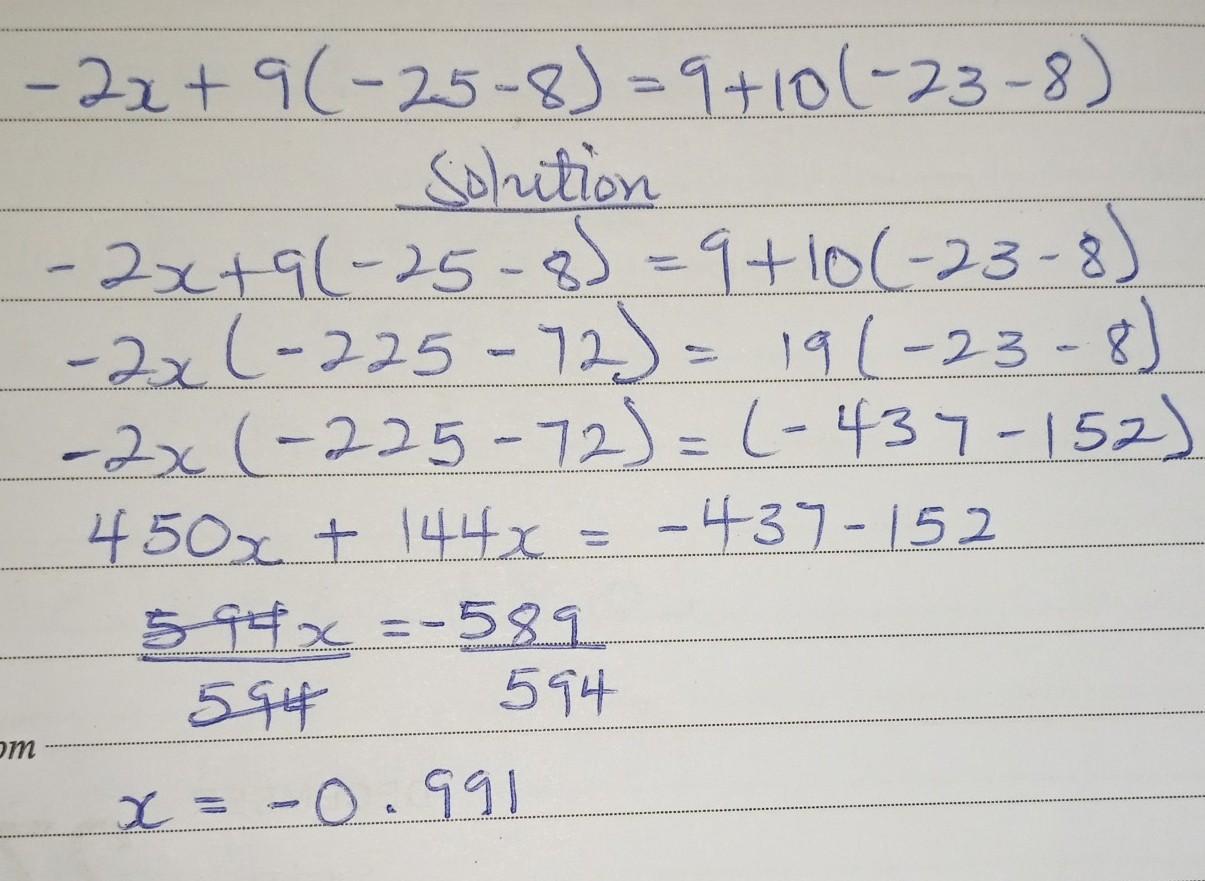 -2x + 9(-25-8) = 9+10(-23-8)
Solution
-2x+9(-25-8) = 9+10(-23-8)
-2x(-225-72) = 19(-23-8)
-2x(-225-72) = (-437-152)
450x + 144x = -437-152
594x = -589
594 594
om
x = -0.991